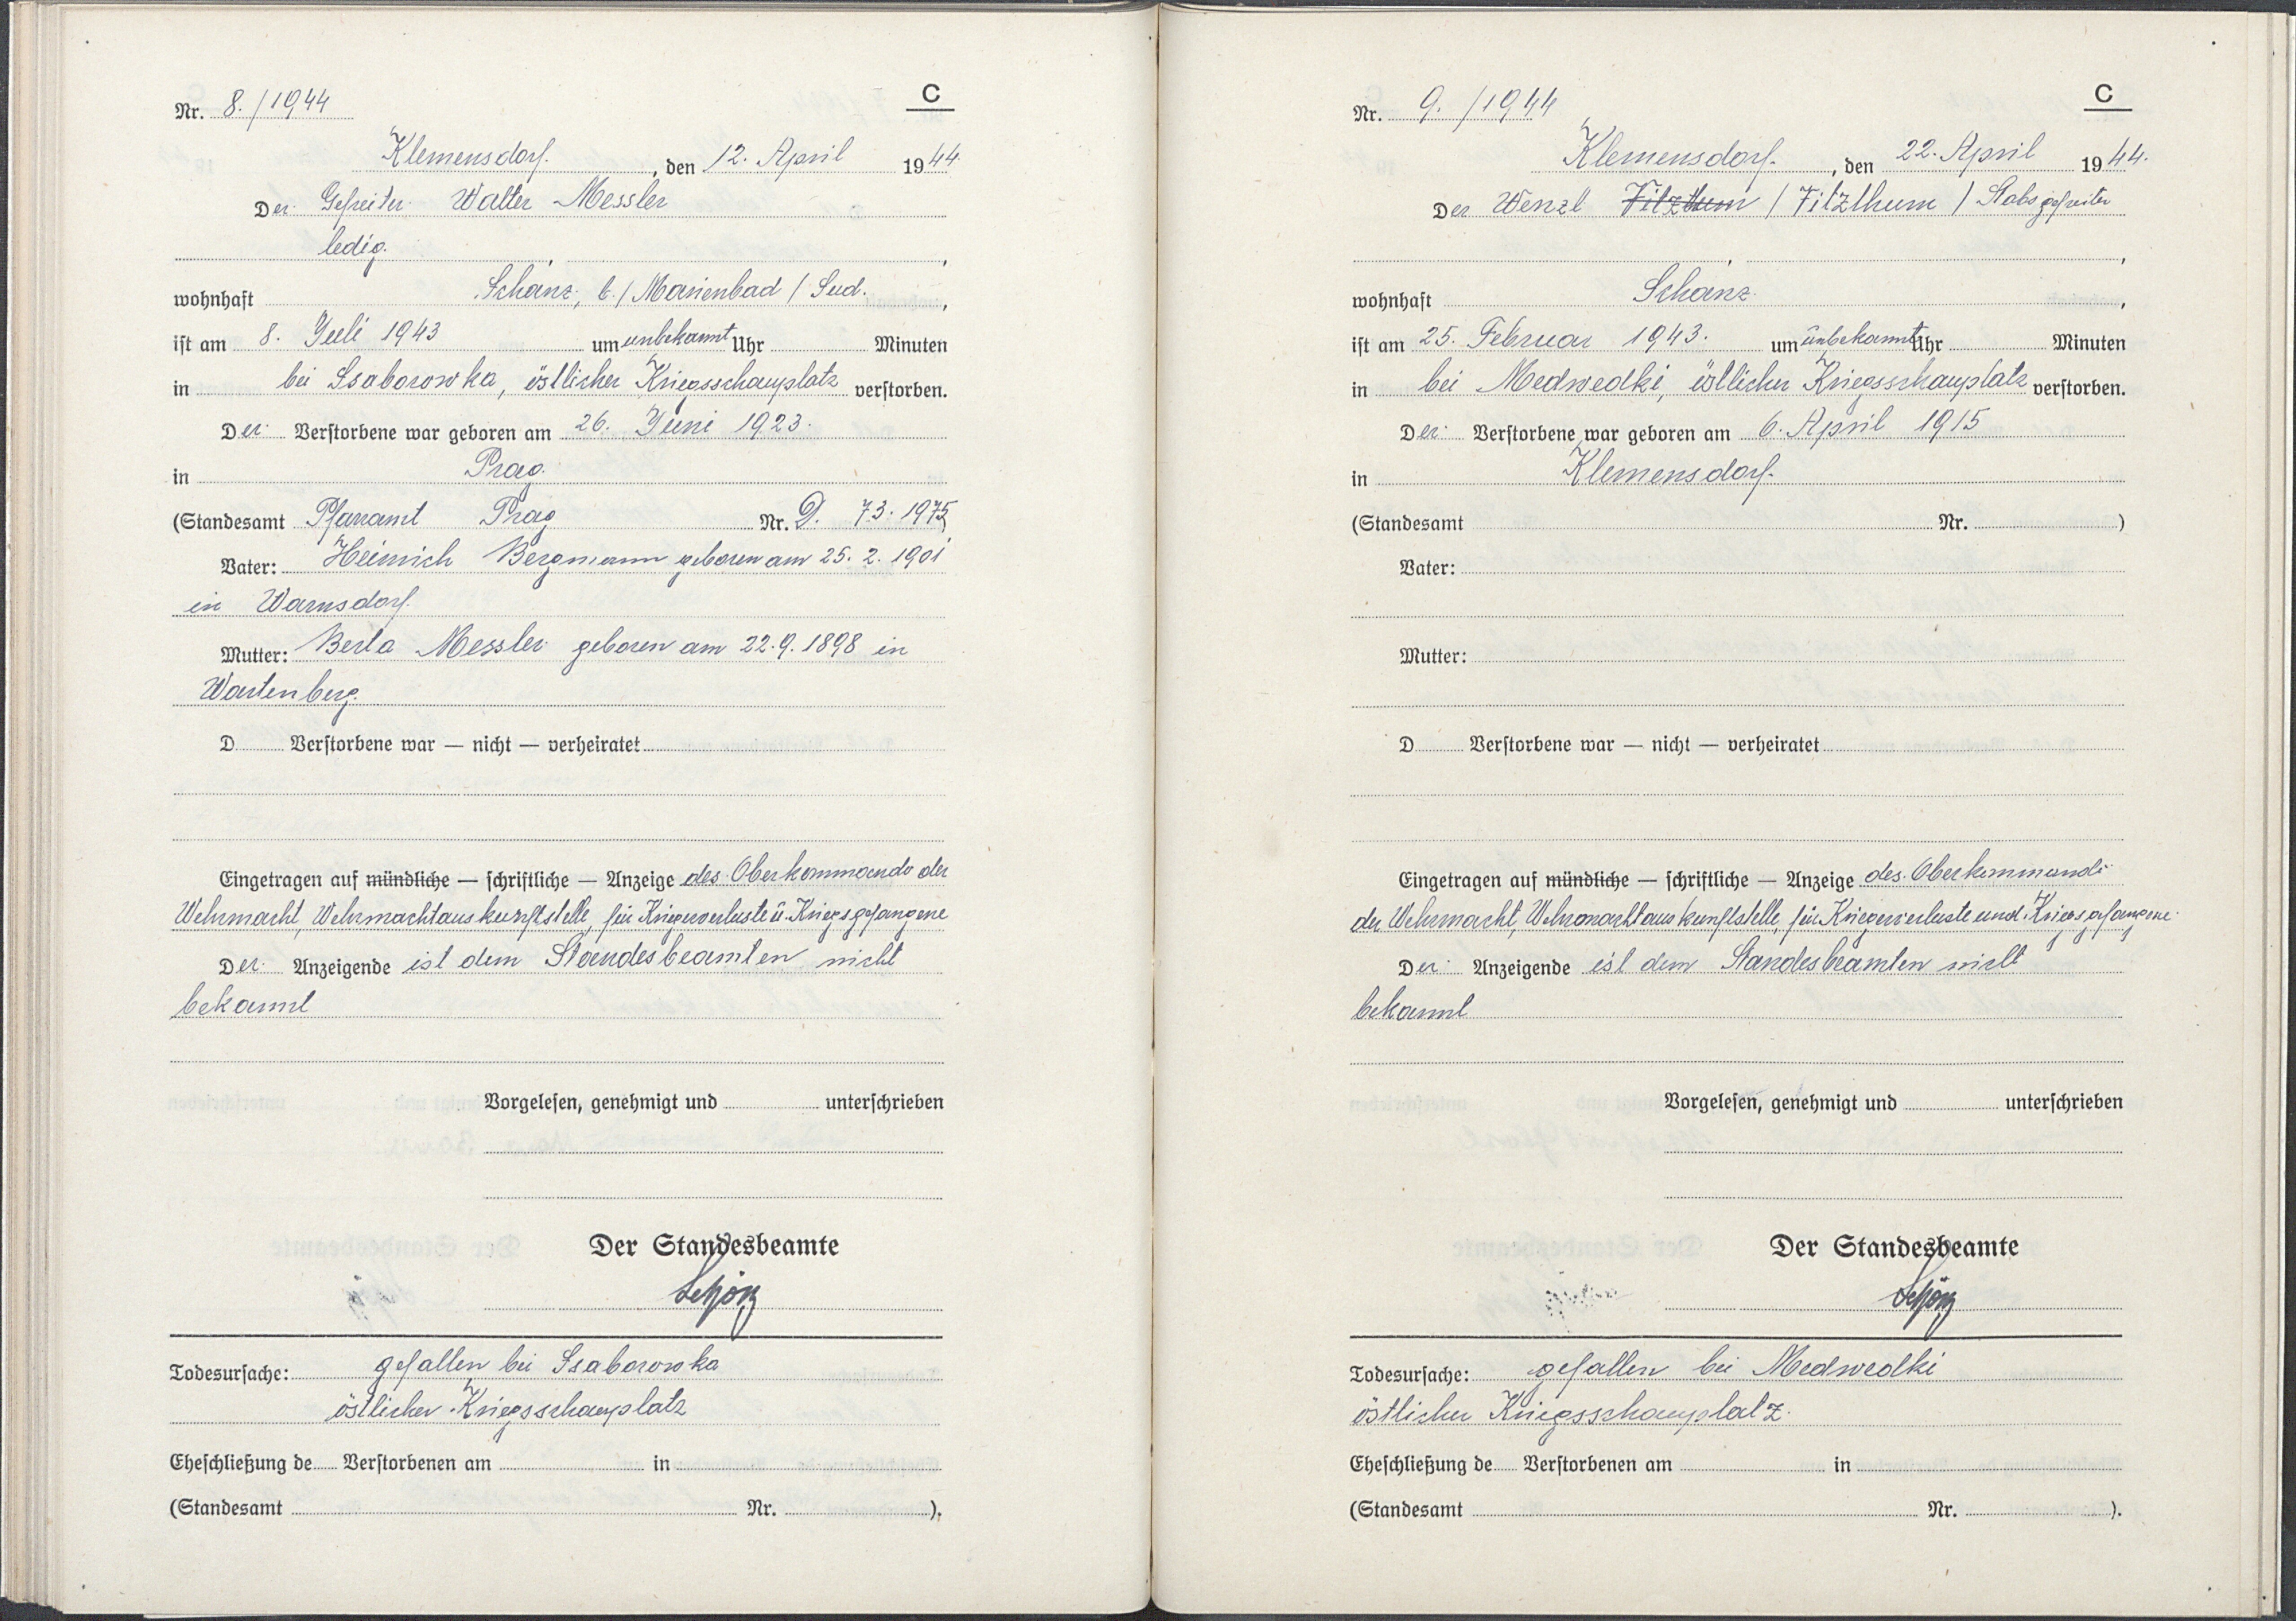 C
Nr. 8. / 1944
Klemensdorf. , den 12. April 1944.
Der Gefreiter Walter Messler
ledig. , ,
wohnhaft Schanz, b. / Marienbad / Sud. ,
ist am 8. Juli 1943 um unbekannt Uhr Minuten
in bei Ssaborowka, östlicher Kriegsschauplatz verstorben.
Der Verstorbene war geboren am 26. Juni 1923.
in Prag.
(Standesamt Pfarramt Prag Nr. D. 73. 1975)
Vater: Heinrich Bergmann geboren am 25. 2. 1901
in Warnsdorf.
Mutter: Berta Messler geboren am 22. 9. 1898 in
Wartenberg.
D Verstorbene war — nicht — verheiratet
Eingetragen auf mündliche — schriftliche — Anzeige des Oberkommando der
Wehrmacht, Wehrmachtauskunftstelle, für Kriegerverluste ü. Kriegsgefangene
Der Anzeigende ist dem Standesbeamten nicht
bekannt
Vorgelesen, genehmigt und unterschrieben
Der Standesbeamte
Todesursache: gefallen bei Ssaborowka
östlicher Kriegsschauplatz
Eheschließung de Verstorbenen am in
(Standesamt Nr. ).
C
Nr. 9. / 1944
Klemensdorf. , den 22. April 1944.
Der Wenzl Vitzthum / Fitzthum / Stabsgefreiter
, ,
wohnhaft Schanz. ,
ist am 25. Februar 1943. um ünbekannt Uhr Minuten
in bei Medwedki, östlicher Kriegsschauplatz verstorben.
Der Verstorbene war geboren am 6. April 1915
in Klemensdorf.
(Standesamt Nr. )
Vater:
Mutter:
D Verstorbene war — nicht — verheiratet
Eingetragen auf mündliche — schriftliche — Anzeige des Oberkommando
der Wehrmacht, Wehrmachtauskunftstelle, für Kriegerverluste und Kriegsgefangene.
Der Anzeigende ist dem Standesbeamten nicht
bekannt
Vorgelesen, genehmigt und unterschrieben
Der Standesbeamte
Todesursache: gefallen bei Medwedki
östlicher Kriegsschauplatz.
Eheschließung de Verstorbenen am in
(Standesamt Nr. ).